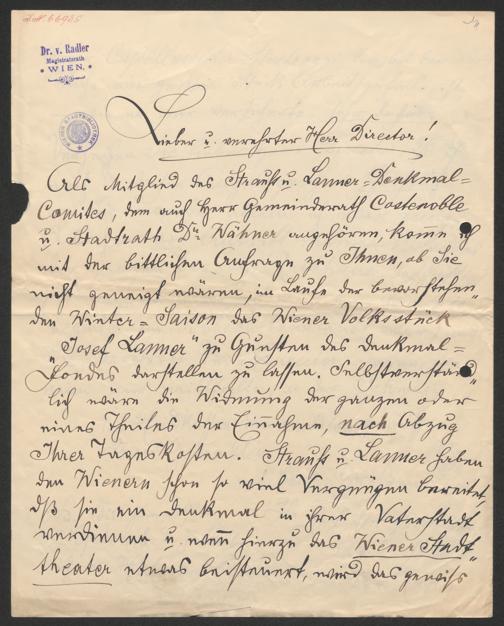 Dr. v. Radler
Magistratsrath
* WIEN. *
Lieber u. verehrter Herr Director!
Als Mitglied des Strauß u. Lanner-Denkmal-
Comites, dem auch Herr Gemeinderath Costenoble
u. Stadtrath Dr. Wähner angehören, kome ich
mit der bittlichen Anfrage zu Ihnen, ob Sie
nicht geneigt wären, im Laufe der bevorstehen-
den Winter-Saison das Wiener Volksstück
"Josef Lanner" zu Gunsten des Denkmal-
Fondes darstellen zu lassen. Selbstverständ-
lich wäre die Widmung der ganzen oder
eines Theiles der Einahme, nach Abzug
Ihrer Tageskosten. Strauß u. Lanner haben
den Wienern schon so viel Vergnügen bereitet,
dß sie ein Denkmal in ihrer Vaterstadt
verdienen u. wenn hierzu das Wiener Stadt-
theater etwas beisteuert, wird das gewiss